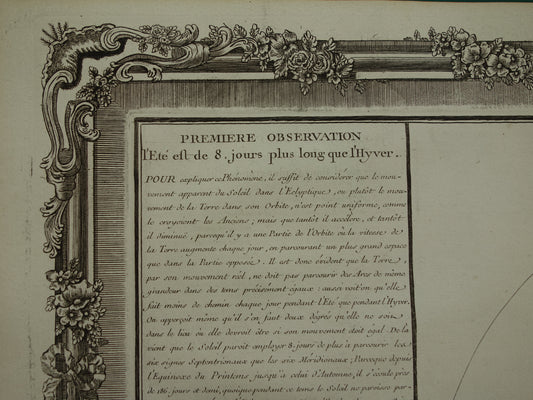 PREMIERE OBSERVATION
l'Eté est de 8. jours plus long que l'Hyver.
POUR expliquer ce Phenomene, il suffit de considerer que le mou-
vement apparent du Soleil dans l'Ecliptique, ou plutôt le mou-
vement de la Terre dans son Orbite, n'est point uniforme, comme
le croyoient les Anciens; mais que tantôt il accelere, et tantôt
il diminue, parcequ'il y a une Partie de l'Orbite où la vitesse de
la Terre augmente chaque jour, en parcourant un plus grand espace
que dans la Partie opposée. Il est donc évident que la Terre,
par son mouvement réel, ne doit pas parcourir des Arcs de même
grandeur dans des tems précisément égaux: aussi voit on qu'elle
fait moins de chemin chaque jour pendant l'Eté que pendant l'Hyver.
On apperçoit même qu'il s'en faut deux dégrés qu'elle ne soit
dans le lieu où elle devroit être si son mouvement étoit égal. De là
vient que le Soleil paroit employer 8. jours de plus à parcourir les
six signes Septentrionaux que les six Méridionaux; Parceque depuis
l'Equinoxe du Printems jusqu'à celui d'Automne, il s'écoule près
de 186. jours et demi, quoique pendant ce tems le Soleil ne paroisse par-